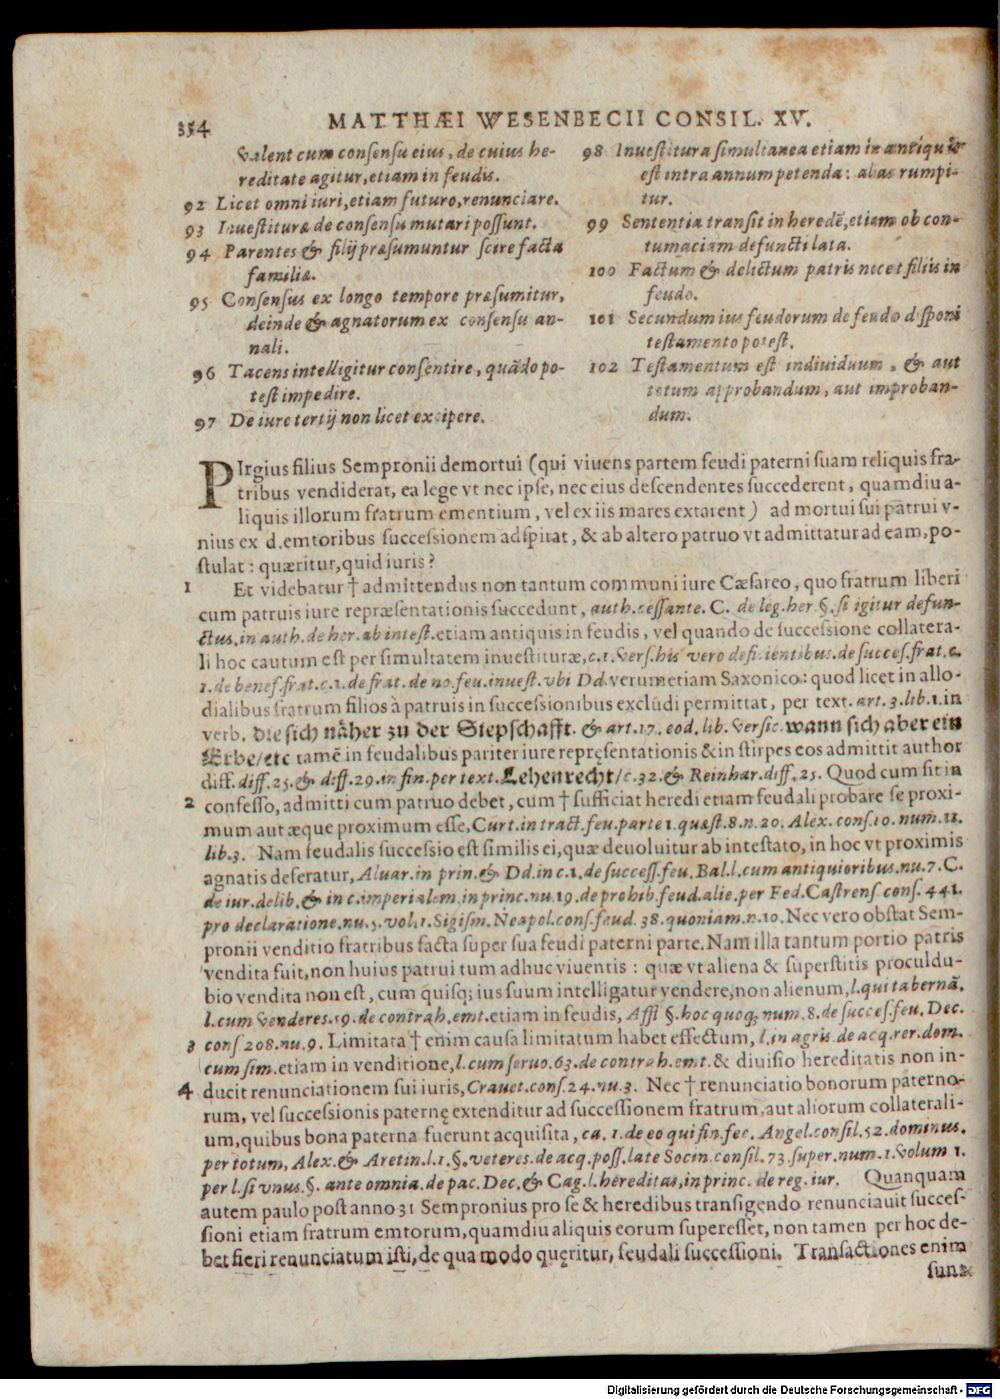 354
MATTHÆI WESENBECII CONSIL. XV.
valent cum consensu eius, de cuius he-
reditate agitur, etiam in feudis.
92 Licet omni iuri, etiam futuro, renunciare.
93 Inuestituræ de consensu mutari possunt.
94 Parentes & filij præsumuntur scire facta
familiæ.
95 Consensus ex longo tempore præsumitur,
deinde & agnatorum ex consensu an-
nali.
96 Tacens intelligitur consentire, quādo po-
test impedire.
97 De iure tertij non licet excipere.
98 Inuestitura simultanea etiam in antiquis
est intra annum petenda: alias rumpi-
tur.
99 Sententia transit in heredē, etiam ob con-
tumaciam defuncti lata.
100 Factum & delictum patris nocet filiis in
feudo.
101 Secundum ius feudorum de feudo disponi
testamento potest.
102 Testamentum est indiuiduum, & aut
totum approbandum, aut improban-
dum.
PIrgius filius Sempronii demortui (qui viuens partem feudi paterni suam reliquis fra-
tribus vendiderat, ea lege vt nec ipse, nec eius descendentes succederent, quamdiu a-
liquis illorum fratrum ementium, vel ex iis mares extarent) ad mortui sui patrui v-
nius ex d. emtoribus successionem adspirat, & ab altero patruo vt admittatur ad eam, po-
stulat: quæritur, quid iuris?
1 Et videbatur † admittendus non tantum communi iure Cæsareo, quo fratrum liberi
cum patruis iure repræsentationis succedunt, auth. cessante. C. de leg. her. §. si igitur defun-
ctus. in auth. de her. ab intest. etiam antiquis in feudis, vel quando de successione collatera-
li hoc cautum est per simultatem inuestituræ, c. 1. vers. his vero deficientibus. de succes. frat. c.
1. de benef. frat. c. 1. de frat. de no. feu. inuest. vbi Dd. verum etiam Saxonico: quod licet in allo-
dialibus fratrum filios à patruis in successionibus exclúdi permittat, per text. art. 3. lib. 1. in
verb. die sich näher zu der Stepschafft. & art. 17. eod. lib. versic. wann sich aber ein
Erbe/etc tamē in feudalibus pariter iure repręsentationis & in stirpes eos admittit author
diff. diff. 25. & diff. 29. in fin. per text. Lehenrecht/c. 32. & Reinhar. diff. 25. Quod cum sit in
2 confesso, admitti cum patruo debet, cum † sufficiat heredi etiam feudali probare se proxi-
mum aut æque proximum esse, Curt. in tract. feu. parte 1. quæst. 8. n. 20. Alex. cons. 10. num. 11.
lib. 3. Nam feudalis successio est similis ei, quæ deuoluitur ab intestato, in hoc vt proximis
agnatis deferatur, Aluar. in prin. & Dd. in c. 1. de success. feu. Bal. l. cum antiquioribus. nu. 7. C.
de iur. delib. & in c. imperialem. in princ. nu. 19. de prohib. feud. alie. per Fed. Castrens. cons. 441.
pro declaratione. nu. 5. vol. 1. Sigism. Neapol. cons. feud. 38. quoniam. n. 10. Nec vero obstat Sem-
pronii venditio fratribus facta super sua feudi paterni parte. Nam illa tantum portio patris
vendita fuit, non huius patrui tum adhuc viuentis: quæ vt aliena & superstitis proculdu-
bio vendita non est, cum quisq; ius suum intelligatur vendere, non alienum, l. qui tabernā.
l. cum venderes. 59. de contrah. emt. etiam in feudis, Affl §. hoc quoq; num. 8. de succes. feu. Dec.
3 cons. 208. nu. 9. Limitata † enim causa limitatum habet effectum, l. in agris. de acq. rer. dom.
cum sim. etiam in venditione, l. cum seruo. 63. de contrah. emt. & diuisio hereditatis non in-
4 ducit renunciationem sui iuris, Crauet. cons. 24. nu. 3. Nec † renunciatio bonorum paterno-
rum, vel successionis paternę extenditur ad successionem fratrum, aut aliorum collaterali-
um, quibus bona paterna fuerunt acquisita, ca. 1. de eo qui fin. fec. Angel. consil. 52. dominus.
per totum, Alex. & Aretin. l. 1. §. veteres. de acq. poss. late Socin. consil. 73. super. num. 1. volum 1.
per l. si vnus. §. ante omnia. de pac. Dec. & Cag. l. hereditas, in princ. de reg. iur. Quanquam
autem paulo post anno 31 Sempronius pro se & heredibus transigendo renunciauit succes-
sioni etiam fratrum emtorum, quamdiu aliquis eorum superesset, non tamen per hoc de-
bet fieri renunciatum isti, de qua modo quęritur, feudali successioni. Transactiones enim
sunt
Digitalisierung gefördert durch die Deutsche Forschungsgemeinschaft - DFG